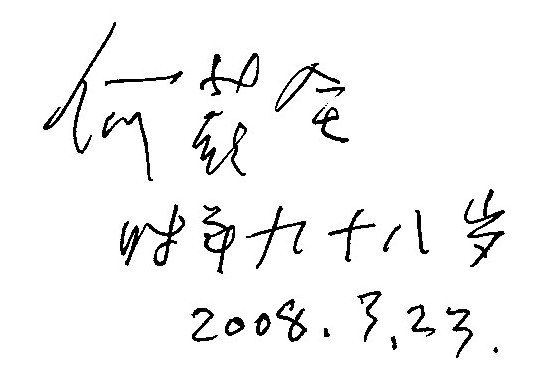 何兹全
时年九十八岁
2008.3.23.